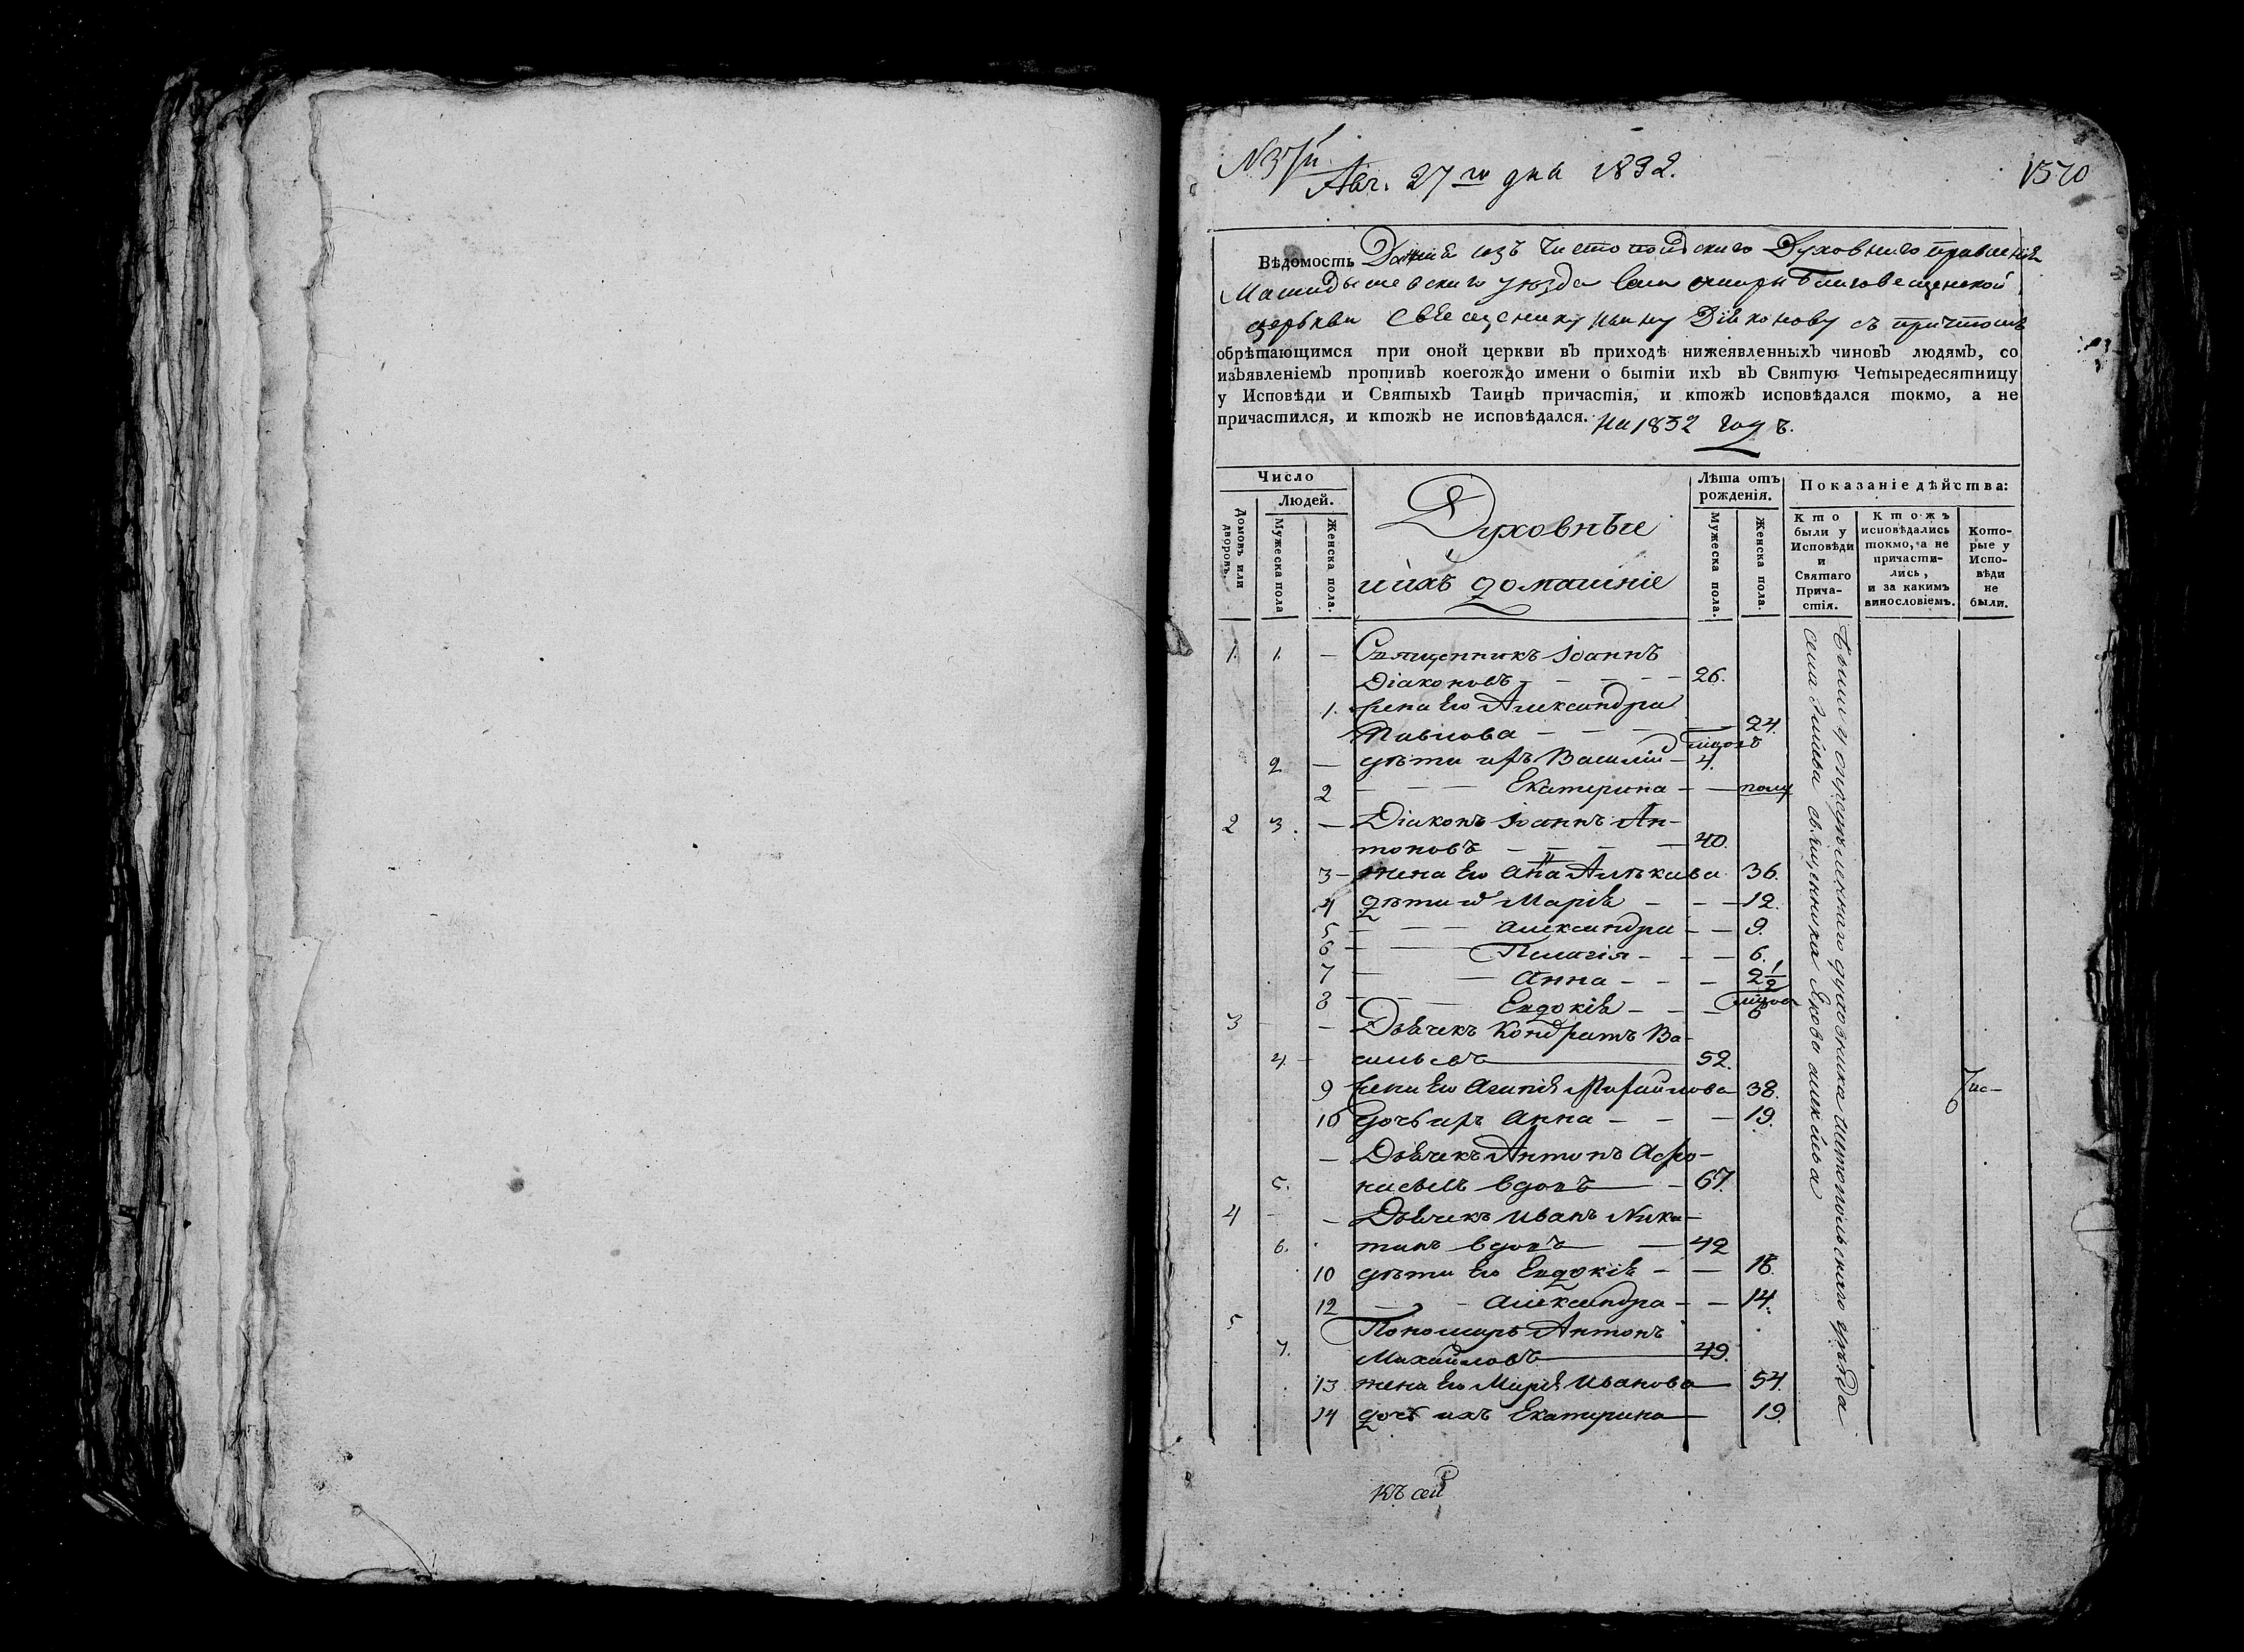 N 37й
Авг. 27 го дня 1832.
1370
Вѣдомость Данная изъ Чистопольскаго Духовнаго правленія
Мамадышевскаго уѣзда села Омары Благовещенской
церькви Священнику Ивану Діяконову съ причтомъ
обрѣтающимся при оной церкви въ приходѣ нижеявленныхъ чиновъ людямъ, со
изъявленіемъ противъ коегождо имени о бытіи ихъ въ Святую Четыредесятницу
у Исповѣди и Святыхъ Таинъ причастія, и ктожъ исповѣдался токмо, а не
причастился, и ктожъ не исповѣдался. на 1832 годъ.
Число
Людей.
Домовъ или дворовъ.
Мужеска пола
Женска пола.
Духовные
и ихъ домашніе
Лѣта отъ рожденія.
Мужеска пола.
Женска пола.
Показаніе дѣйства:
Кто были у Исповѣди и Святаго Причастія.
Ктожъ исповѣдались токмо, а не причастились, и за какимъ винословіемъ.
Которые у Исповѣди не были.
1. 1. — Священникъ Іоаннъ
Діаконовъ — — — — 26.
1. жена Его Александра
Павлова — — — — 24.
2 — дѣти ихъ Василій — 4.
2 — — — Екатерина — — полу
2 3. — Діаконъ Іоаннъ Ан-
тоновъ — — — — 40.
3 — жена Его Анна 36.
4 дѣти Марія — — — 12.
5 — — — Александра — — 9.
6 — — — Пелагія — — — 6.
7 — — Анна — — — 2 1/2
8 — — — Евдокія — — —
3 — — Дьячекъ Кондратъ Ва-
4. — сильевъ 52.
9 жена Его Агапія Михайлова 38.
10 дочь ихъ Анна — — — 19.
— Дьячекъ Антонъ Афо-
5. насьевъ вдовъ — 67.
4 — — Дьячекъ Иванъ Ники-
6. тинъ вдовъ — 42
10 дѣти Его Евдокія — — 16.
12 — — Александра — — 14.
5 Пономарь Антонъ
7. Михайловъ 49.
13 жена Его Марія Иванова 54.
14 дочь ихъ Екатерина 19.
Были у опредѣленнаго духовника Чистопольскаго уѣзда
села священника Якова Алексѣева
къ сей